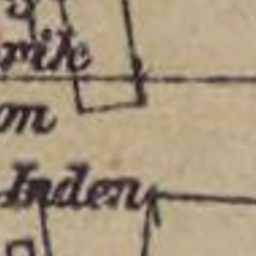 rik
om
Inden